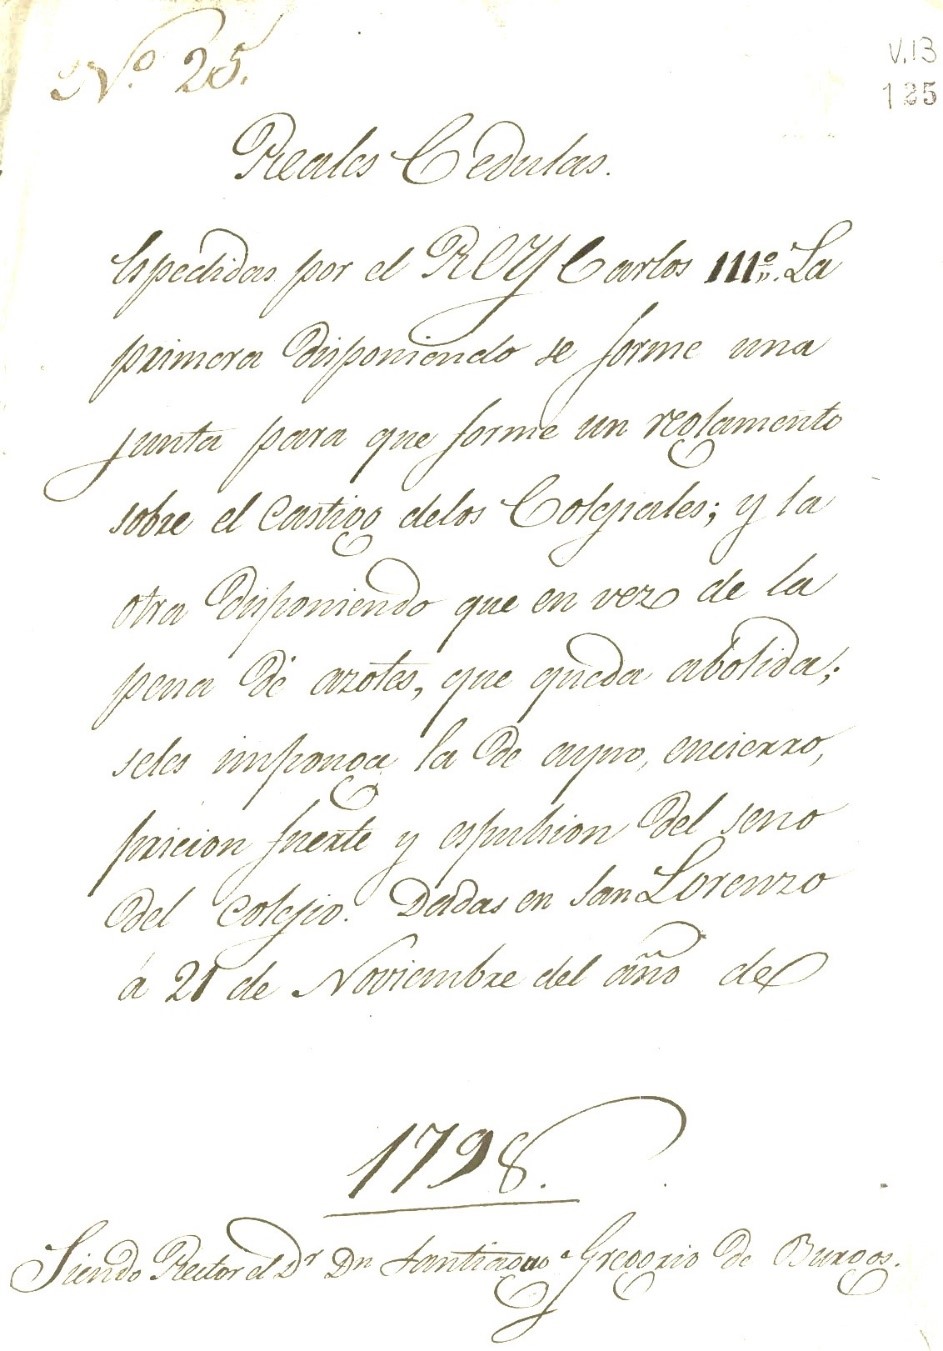 Nº 25.
V.13
125
Reales Cedulas.
Espedidas por el REY Carlos IIIº. La
primera disponiendo se forme una
junta para que forme un reglamento
sobre el castigo delos Colegiales; y la
otra disponiendo que en vez de la
pena de azotes, que queda abolida;
seles imponga la de ayno, encierro,
pricion fuerte y espulsion del seno
del colegio. Dadas en San Lorenzo
á 21 de Noviembre del año de
1798.
Siendo Rector el Dr Dn Santiaguo Gregorio de Burgos.